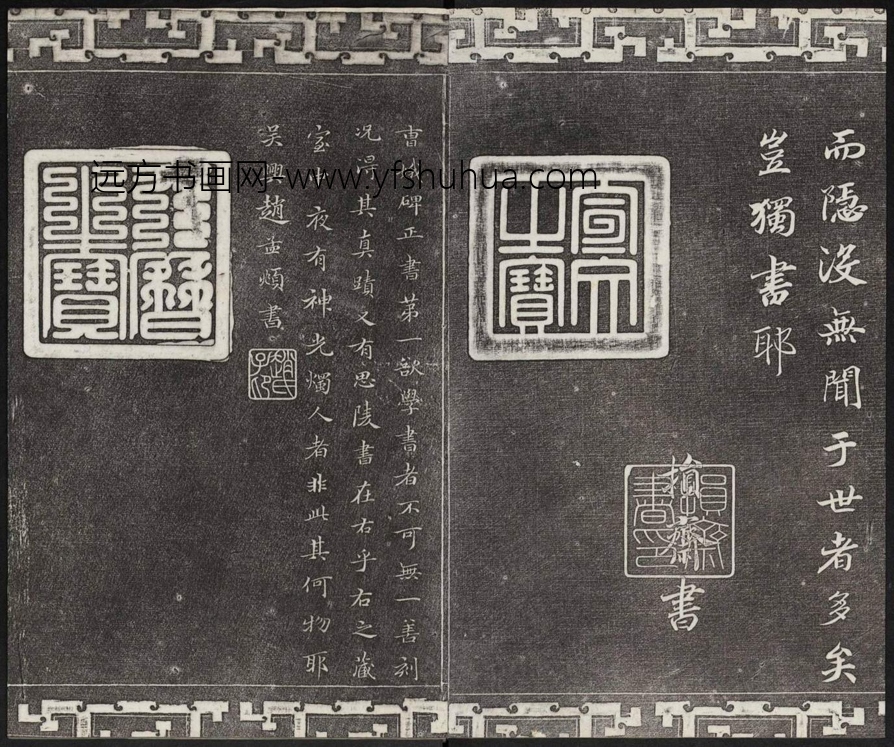 而隱没無聞于世者多矣
豈獨書耶
損齋書
宣文之寶
曹娥碑正書第一欲學書者不可無一善刻
况得其真蹟又有思陵書在右乎右之藏
室中夜有神光燭人者非此其何物耶
吴興趙孟頫書
趙氏子昂
天曆之寶
远方书画网-www.yfshuhua.com